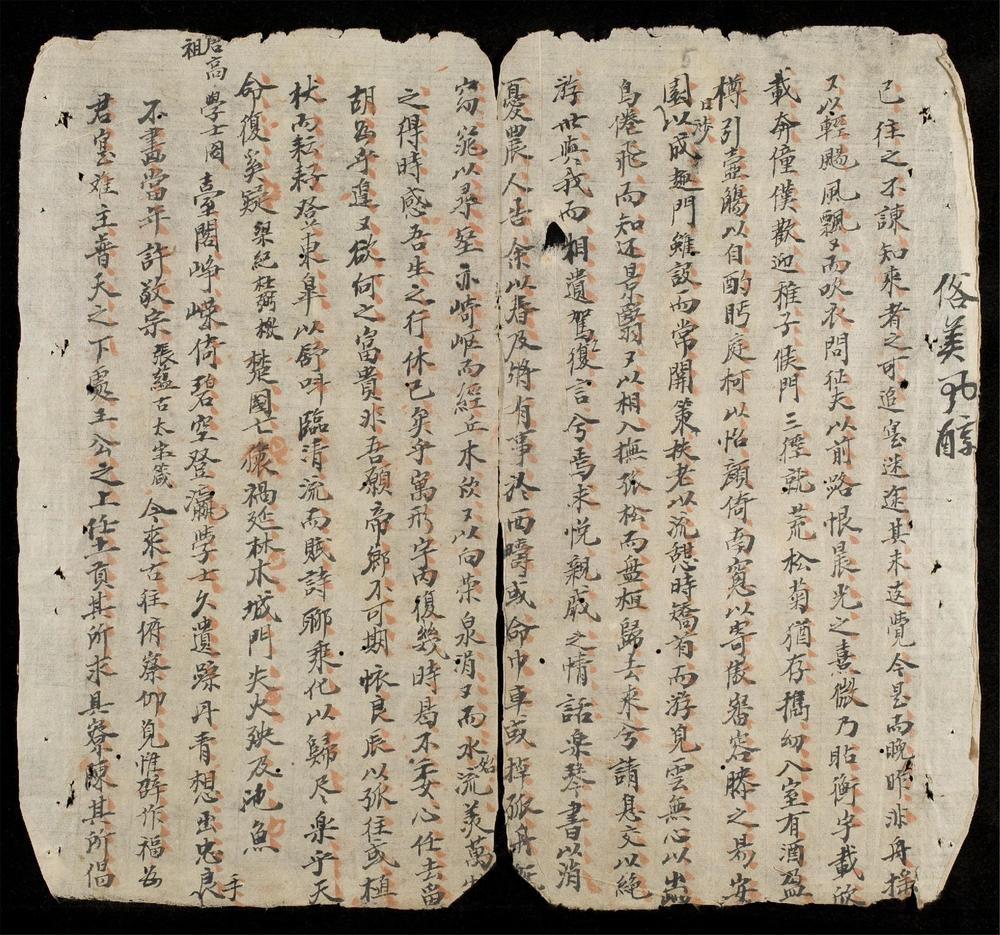 俗美夙醇
已往之不諫知來者之可追寔迷途其未遠覺今是而昨非舟搖
又以輕颺風飄又而吹衣問征夫以前路恨晨光之熹微乃瞻衡宇載欣
載奔僮僕歡迎稚子候門三徑就荒松菊猶存攜幼入室有酒盈
樽引壺觴以自酌眄庭柯以怡顏倚南窓以寄傲審容膝之易安
園日涉以成趣門雖設而常開策扶老以流憩時矯首而游覓雲無心以出
鳥倦飛而知还景翳又以相入撫孤松而盘桓歸去來兮請息交以絶
游世與我而相遺駕復言兮焉求悅親戚之情話樂琴書以消
憂農人告余以春及將有事於西疇或命巾車或掉孤舟
窈窕以尋壑亦崎岖而經丘木欣又以向荣泉涓又而水流羡萬
之得時感吾生之行休已矣乎寓形宇内復幾時曷不委心任去留
胡爲乎遑又欲何之富貴非吾願帝鄉不可期懷良辰以孤往或植
杖而耘耔登東皐以舒叫臨清流而賦詩聊乘化以歸尽樂乎天
命復奚疑 梁紀杜弼檄 楚國亡猿禍延林木城門失火殃及池魚
祖 高學士圖 壹閣峥嵘倚碧空登瀛學士久遺蹤丹青想出忠良手
不畫當年許敬宗 張蘊古太宝箴 今來古往俯察仰見惟辟作福爲
君寔难主普天之下處王公之上任土貢其所求具寮陳其所倡